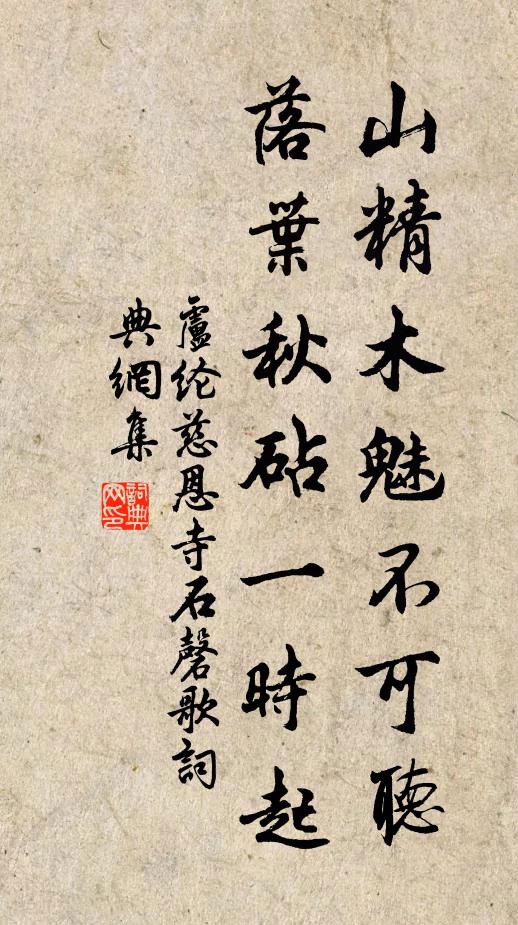 山精木魅不可聽
落葉秋砧一時起
盧纶慈恩寺石磬歌詞
典網集
詞典
网印